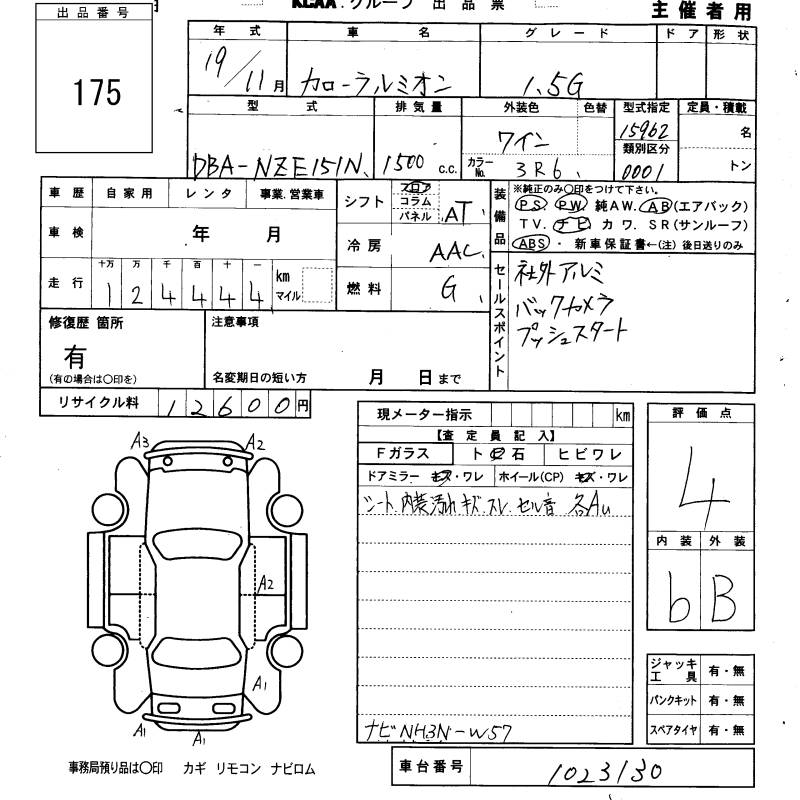 KCAA. グループ 出品票
主催者用
出品番号
175
年式 車名 グレード ドア 形状
19/11月 カローラルミオン 1.5G
型式 排気量 外装色 色替 型式指定 定員・積載
ワイン 15962 名
類別区分
DBA-NZE151N 1500 c.c. カラーNo. 3R6 0001 トン
車歴 自家用 レンタ 事業.営業車
シフト フロア コラム パネル AT
装備品 ※純正のみ○印をつけて下さい。
PS PW 純AW. AB(エアバック)
TV. ナビ カワ. SR(サンルーフ)
ABS・新車保証書←(注) 後日送りのみ
車検 年 月
冷房 AAC
走行 十万 万 千 百 十 一 km マイル
124444
燃料 G
セールスポイント
社外アルミ
バックカメラ
プッシュスタート
修復歴 箇所
有
(有の場合は○印を)
注意事項
名変期日の短い方 月 日まで
リサイクル料 12600円
現メーター指示 km
【査定員記入】
Fガラス ト石 ヒビワレ
ドアミラー キズ・ワレ ホイール(CP) キズ・ワレ
シート.内装汚れ キズ スレ セル音 各Au
ナビNH3N-W57
評価点
4
内装 外装
b B
ジャッキ工具 有・無
パンクキット 有・無
スペアタイヤ 有・無
A3 A2
A2
A1
A1 A1
事務局預り品は○印 カギ リモコン ナビロム
車台番号 1023130